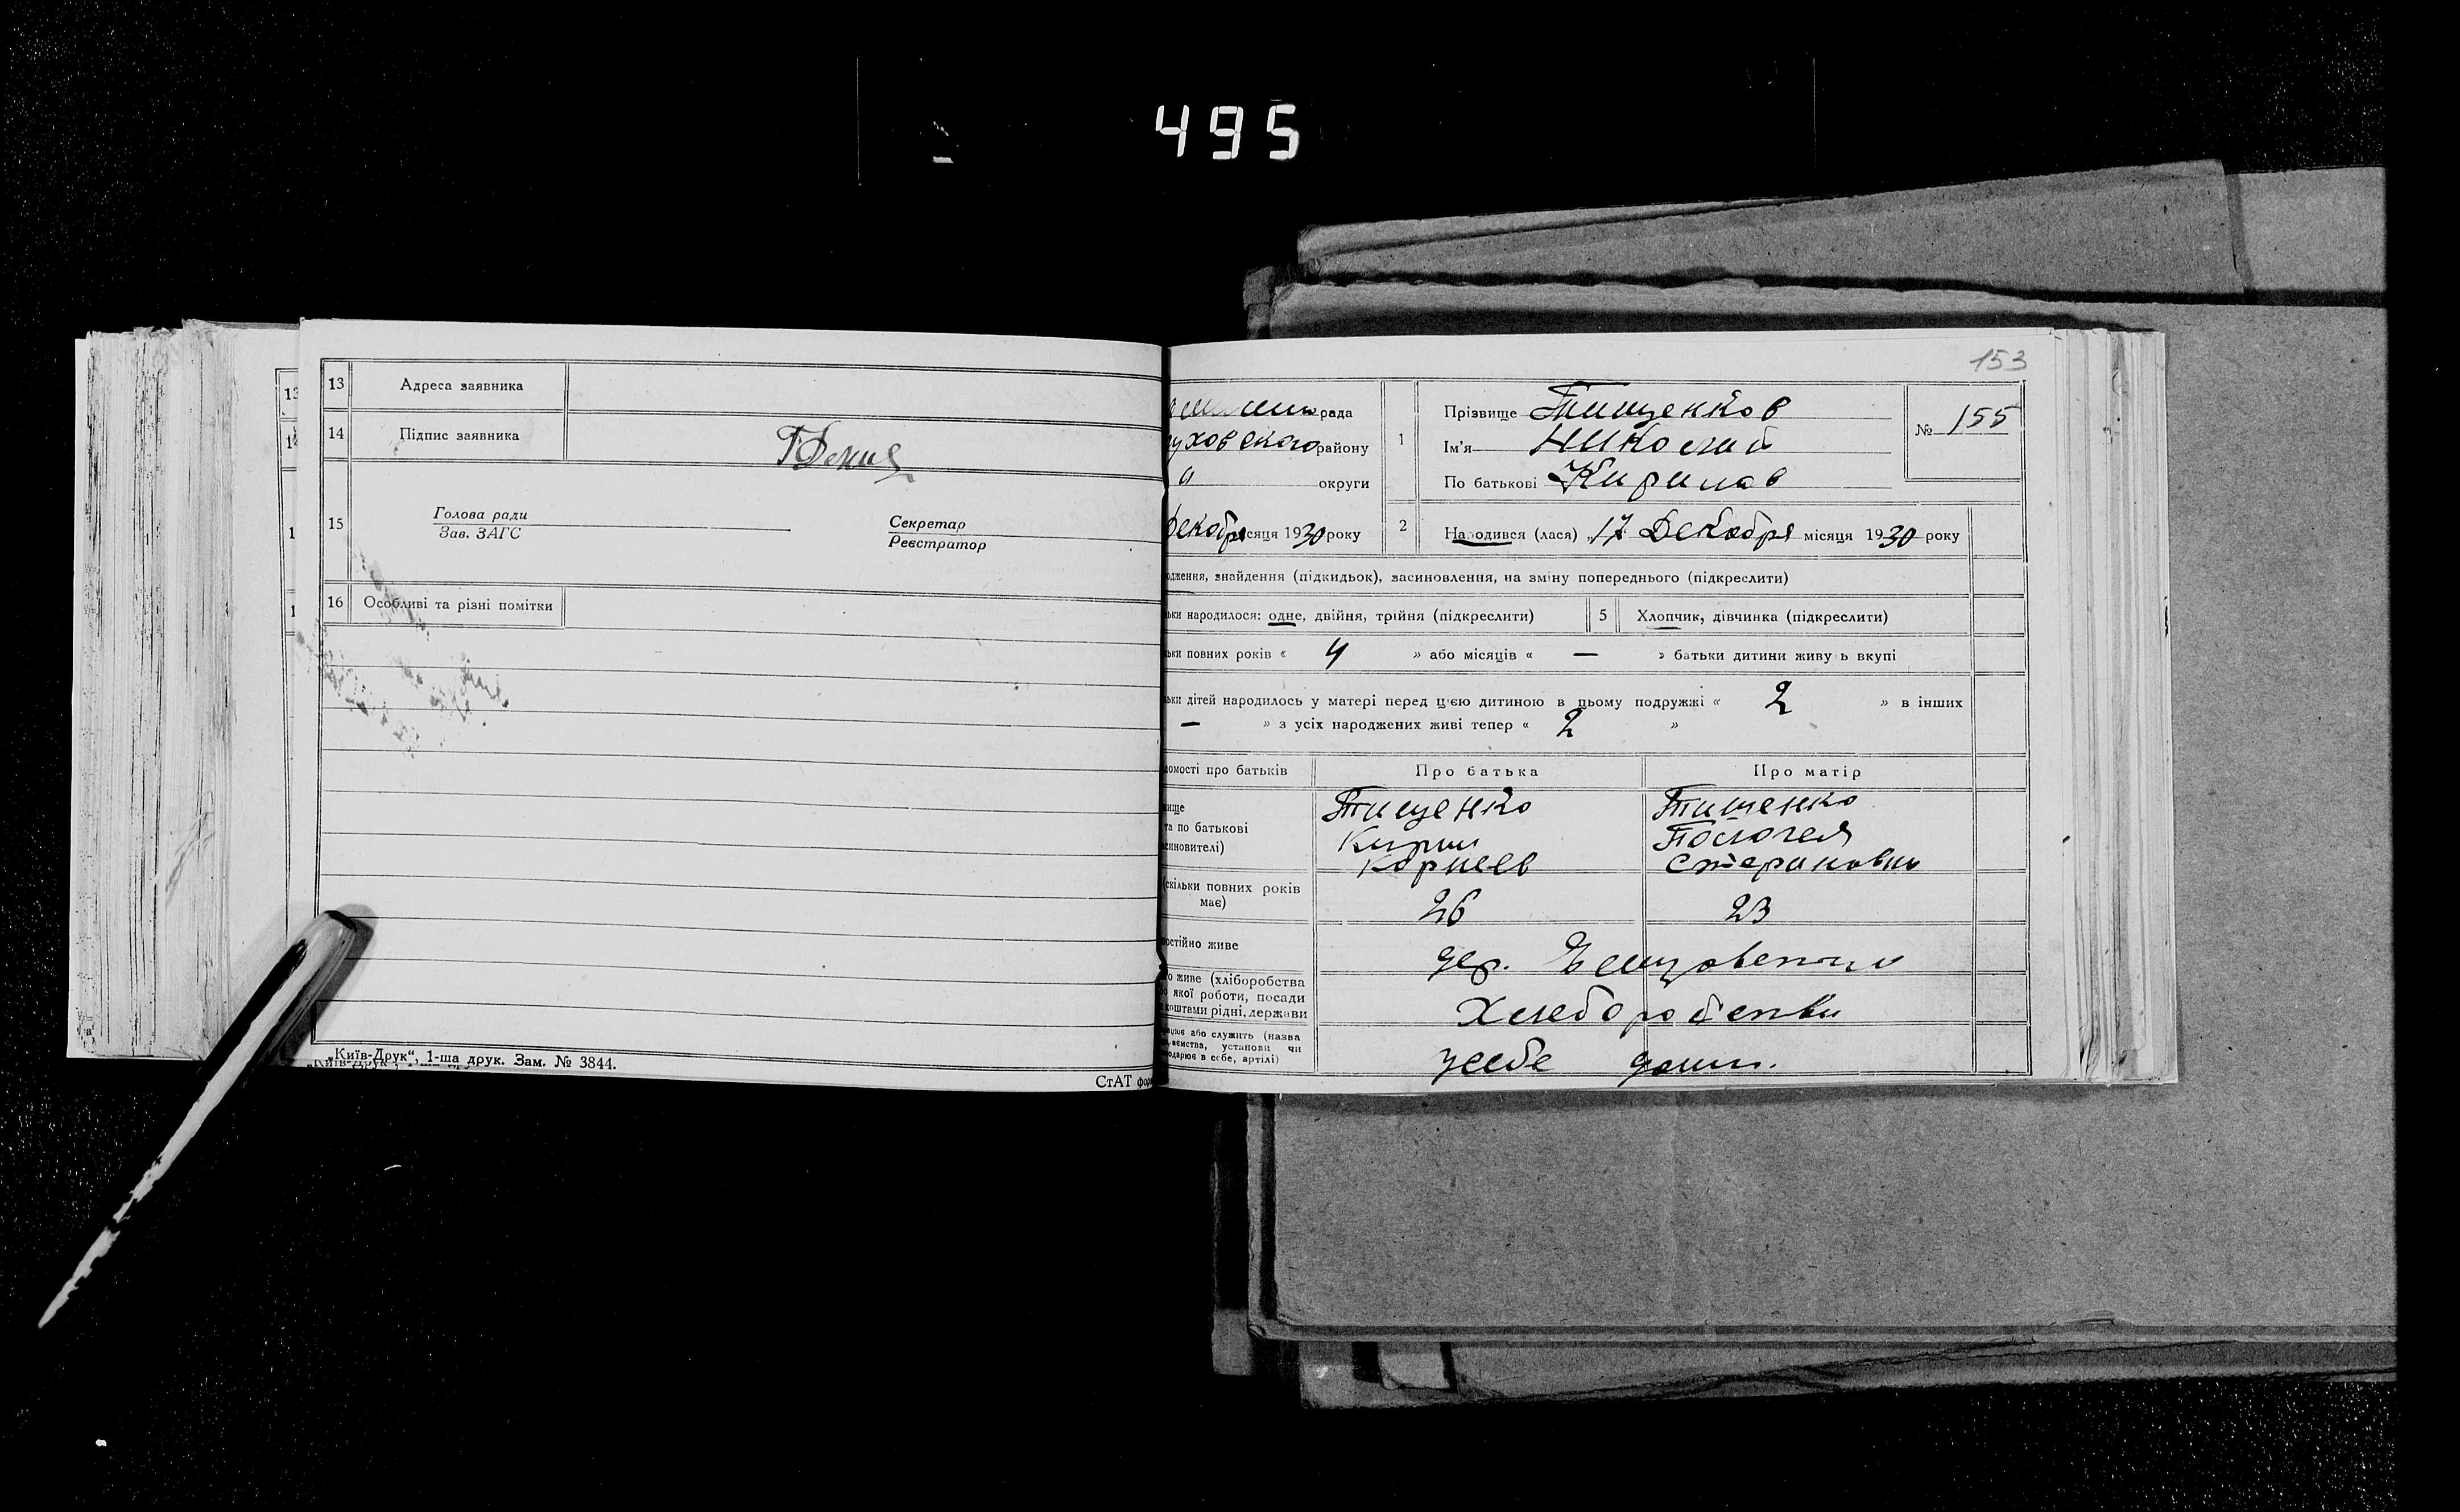 495
13 Адреса заявника
14 Підпис заявника
15 Голова ради
Зав. ЗАГС
Секретар
Реєстратор
16 Особливі та різні помітки
„Київ-Друк“, 1-ша друк. Зам. № 3844.
СтАТ
153
рада
уховского району
округи
1 Прізвище Тищенков
Ім'я Николай
По батькові Кирилов
№ 155
Декабря сяця 1930 року
2 Народився (лася) „17 Декабря місяця 1930 року
одження, знайдення (підкидьок), засиновлення, на зміну попереднього (підкреслити)
ьки народилося: одне, двійня, трійня (підкреслити)
5 Хлопчик, дівчинка (підкреслити)
ьки повних років « 4 » або місяців « — » батьки дитини живуть вкупі
ьки дітей народилось у матері перед цією дитиною в цьому подружжі « 2 » в інших
— » з усіх народжених живі тепер « 2 »
домості про батьків Про батька Про матір
вище Тищенко Тищенко
та по батькові Кирил
синовителі) Корнеев Стефановна
(скільки повних років має) 26 23
постійно живе дер.
о живе (хліборобства
бо якої роботи, посади
коштами рідні, держави
Хлеборобством
рацює або служить (назва
ємства, установи чи
подарює в себе, артілі)
у себе дома.